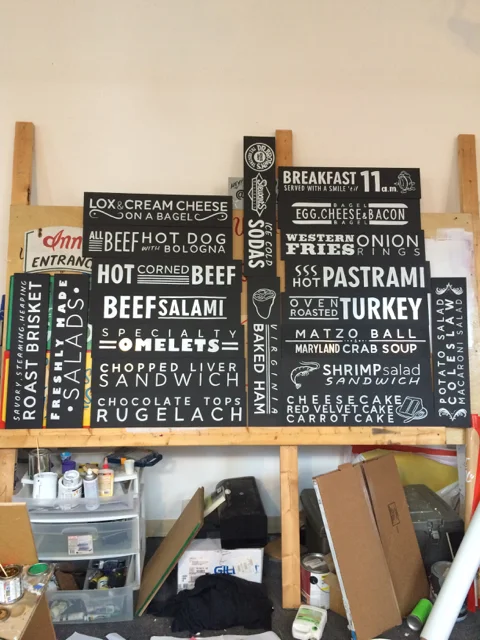 LOX & CREAM CHEESE
ON A BAGEL
ALL BEEF HOT DOG
WITH BOLOGNA
HOT CORNED BEEF
BEEF SALAMI
SPECIALTY
OMELETS
CHOPPED LIVER
SANDWICH
CHOCOLATE TOPS
RUGELACH
ICE COLD
SODAS
VIRGINIA
BAKED HAM
BREAKFAST 11 a.m.
SERVED WITH A SMILE 'til
BAGEL
EGG, CHEESE & BACON
BAGEL
WESTERN FRIES
ONION RINGS
HOT PASTRAMI
OVEN ROASTED TURKEY
MATZO BALL
MARYLAND CRAB SOUP
SHRIMP salad
SANDWICH
CHEESECAKE
RED VELVET CAKE
CARROT CAKE
SAVORY, STEAMING, HEAPING
ROAST BRISKET
FRESHLY MADE
SALADS
POTATO SALAD
COLE SLAW
MACARONI SALAD
Ann
ENTRANC